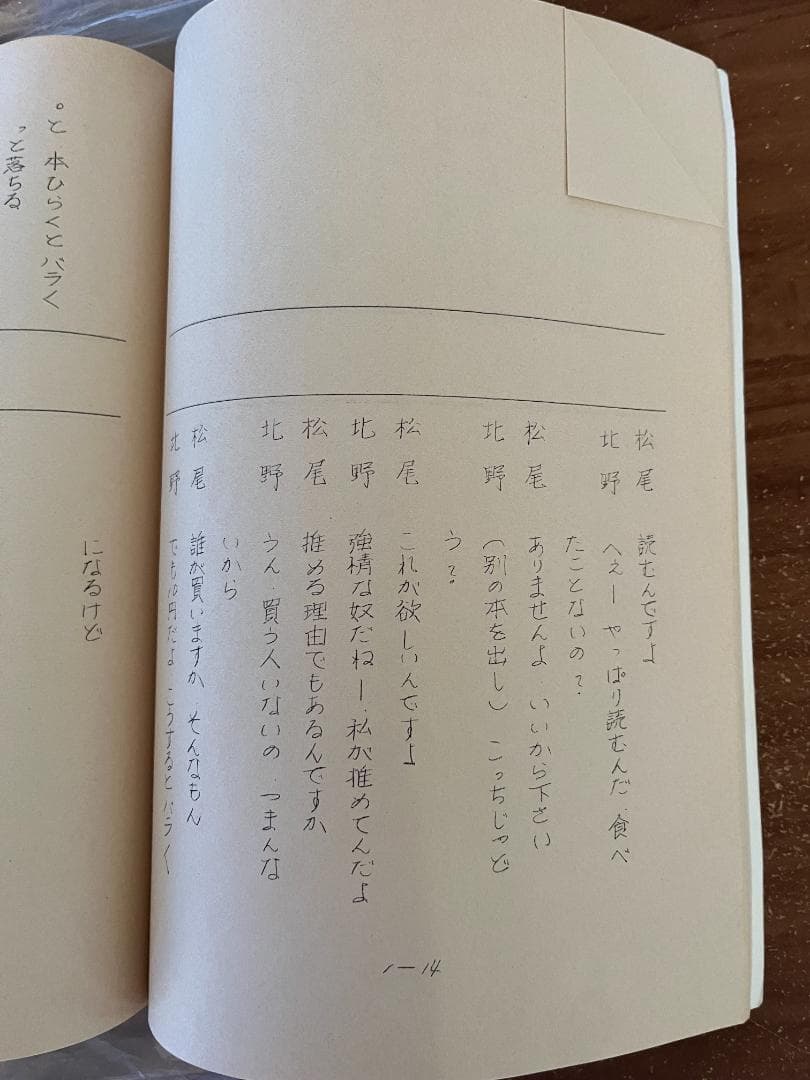 松尾 読むんですよ
北野 へぇー やっぱり読むんだ.食べ
たことないの?
松尾 ありませんよ いいから下さい
北野 (別の本を出し) こっちじゃど
う?
松尾 これが欲しいんですよ
北野 強情な奴だねー.私が推めてんだよ
松尾 推める理由でもあるんですか
北野 うん 買う人いないの つまんな
いから
松尾 誰が買いますか.そんなもん
北野 でも10円だよ こうするとパラく
1-14
。と 本ひらくとバラく
っと落ちる
になるけど